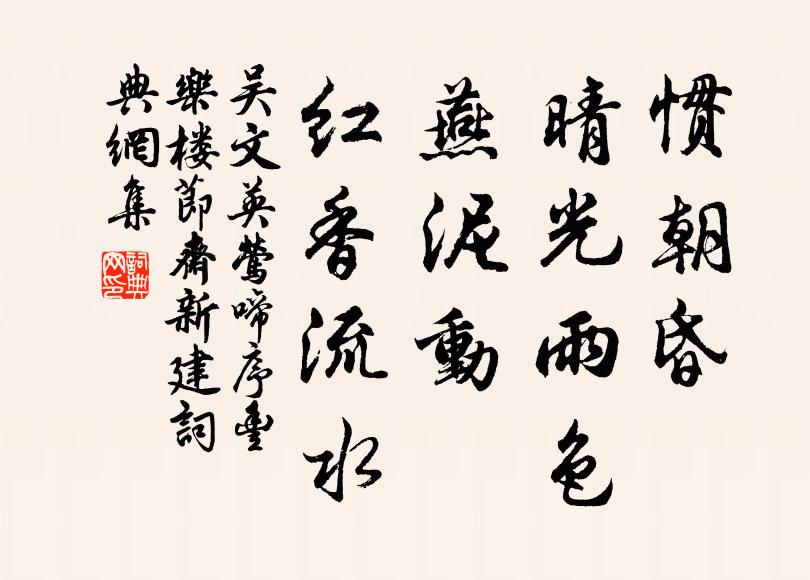 慣朝昏
晴光雨色
燕泥動
红香流水
吴文英鶯啼序豐
樂楼節齋新建詞
典網集
詞典網印